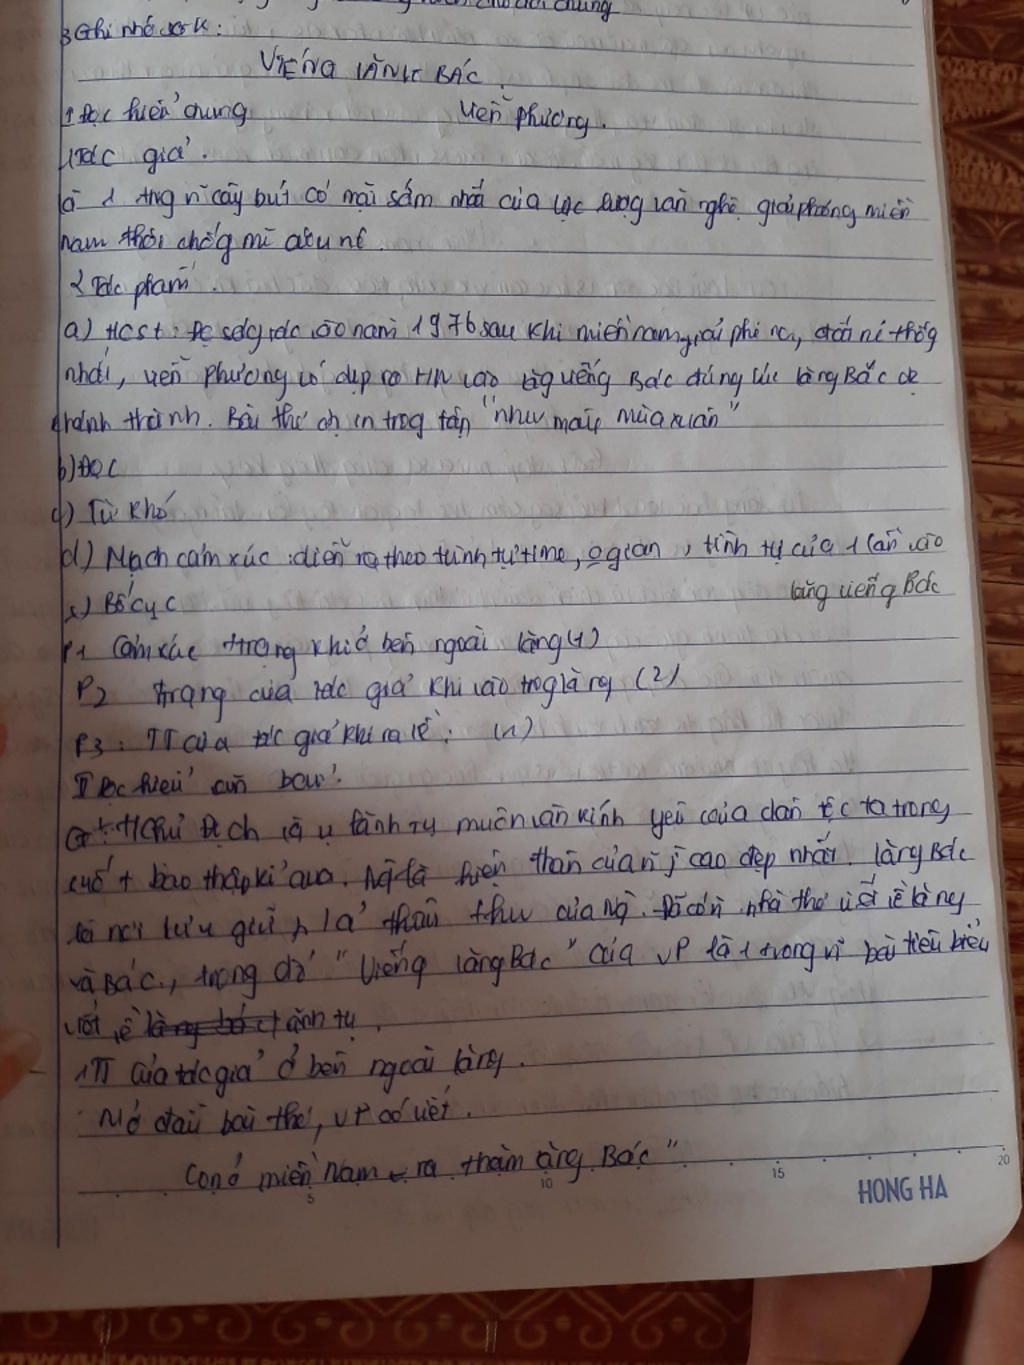 3 Ghi nhớ SGK:
VIẾNG LĂNG BÁC
I Đọc hiểu chung Viễn Phương.
1 Tác giả.
là 1 trong n~ cây bút có mặt sớm nhất của lực lượng văn nghệ giải phóng miền
nam thời chống mĩ cứu nc.
2 Tác phẩm.
a) HCST: Đc sáng tác vào năm 1976 sau khi miền nam giải phóng, đất nc thống
nhất, viễn phương có dịp ra HN vào lăng viếng Bác đúng lúc lăng Bác đc
khánh thành. Bài thơ đc in trog tập "như mây mùa xuân"
b) Đọc
c) Từ khó
d) Mạch cảm xúc: diễn ra theo trình tự time, o gian, trình tự của 1 lần vào
lăng viếng Bác
e) Bố cục
P1 Cảm xúc ttrạng khi ở bên ngoài lăng (1)
P2 ttrạng của tác giả khi vào trog lăng (2)
P3: TT của tác giả khi ra về: (1)
II Đọc hiểu văn bản:
Hchủ tịch là vị lãnh tụ muôn vàn kính yêu của dân tộc ta trong
suốt bao thập kỉ qua. Ng là hiện thân của n~ j cao đẹp nhất. lăng Bác
là nơi lưu giữ thân thể của Ng. Đã có n~ nhà thơ viết về lăng
và Bác., trong đó "Viếng lăng Bác" của VP là 1 trong n~ bài tiêu biểu
viết về lãnh tụ.
1 TT của tác giả ở bên ngoài lăng.
Mở đầu bài thơ, VP có viết.
Con ở miền Nam ra thăm lăng Bác"
5 10 15 20
HONG HA